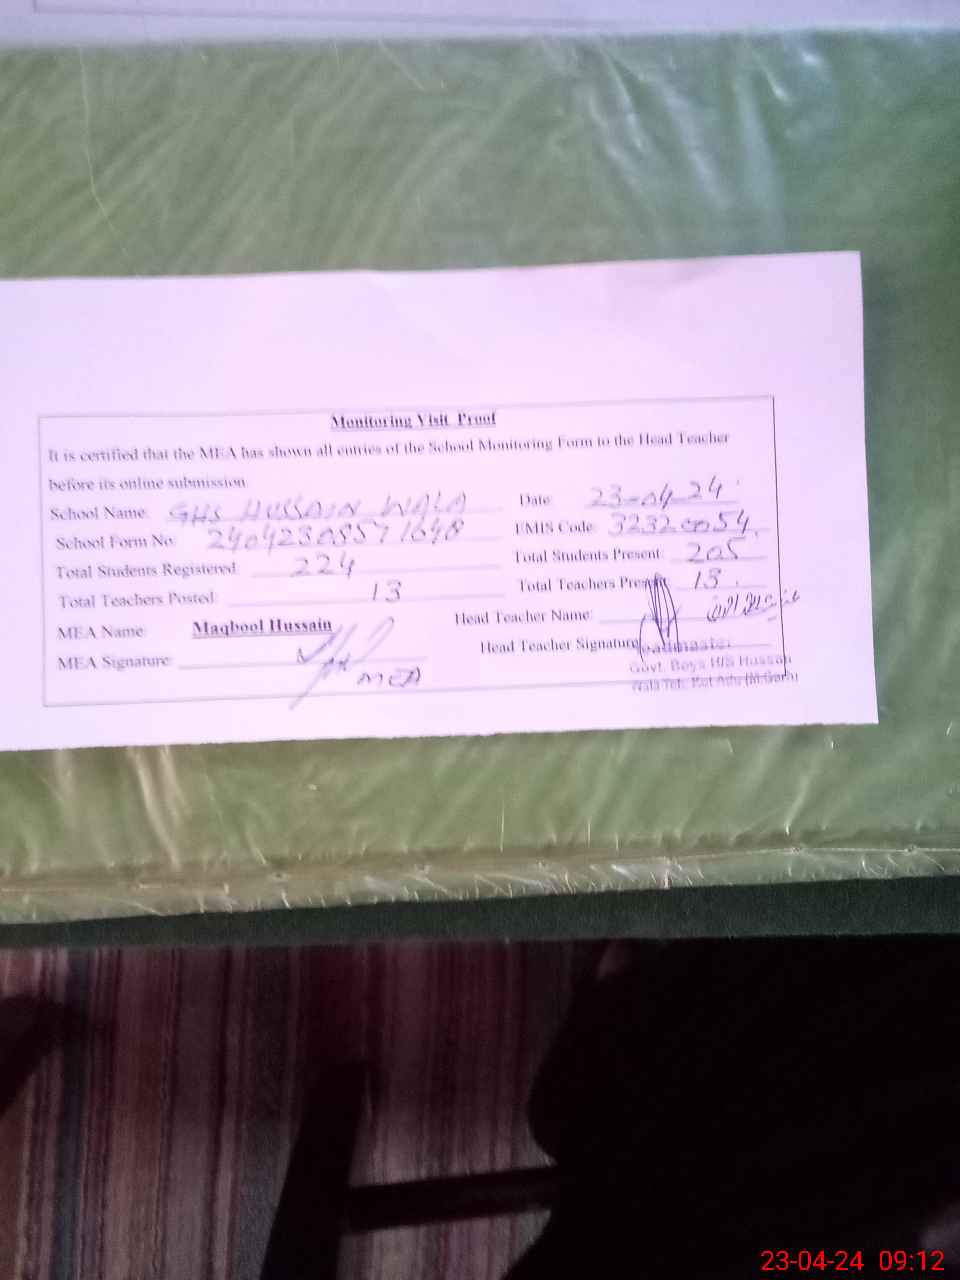 Monitoring Visit Proof
It is certified that the MEA has shown all entries of the School Monitoring Form to the Head Teacher
before its online submission
School Name: GHS HUSSAIN WALA Date: 23-04-24
School Form No: 24042308571648 EMIS Code: 32320054
Total Students Registered: 224 Total Students Present: 205
Total Teachers Posted: 13 Total Teachers Present 13
MEA Name: Maqbool Hussain Head Teacher Name:
MEA Signature: MEA Head Teacher Signature
Headmaster
Govt. Boys H/S Hussan
Wala Teh. Kot Adu (M.Garh)
23-04-24 09:12